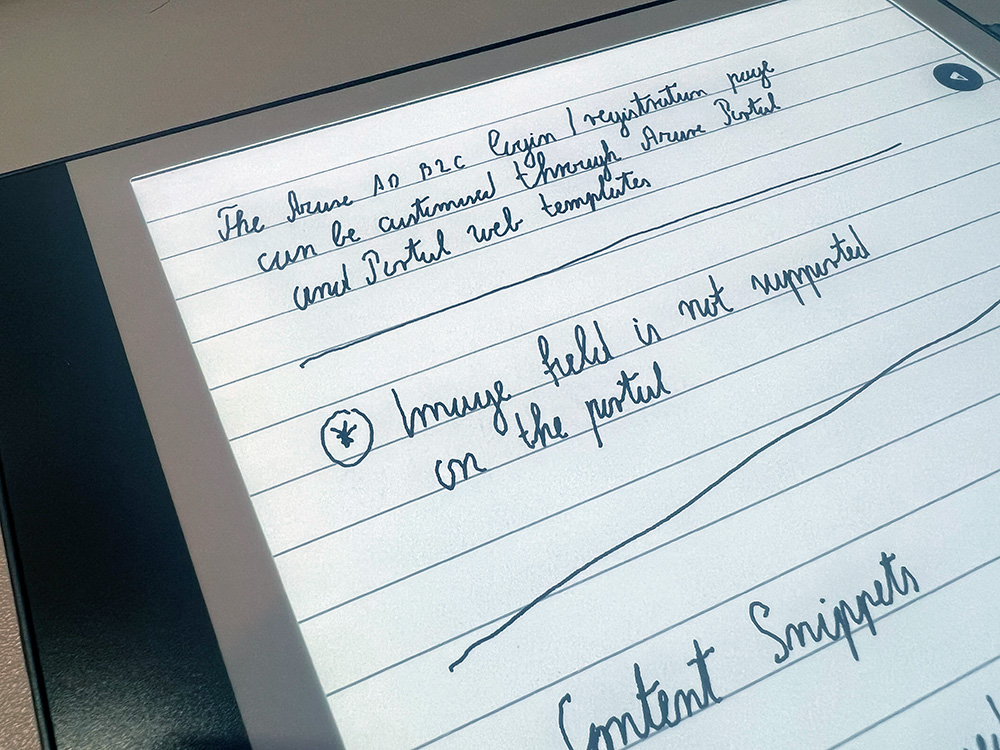 The Azure AD B2C login / registration page
can be customised through Azure Portal
and Portal web templates
* Image field is not supported
on the portal
Content Snippets